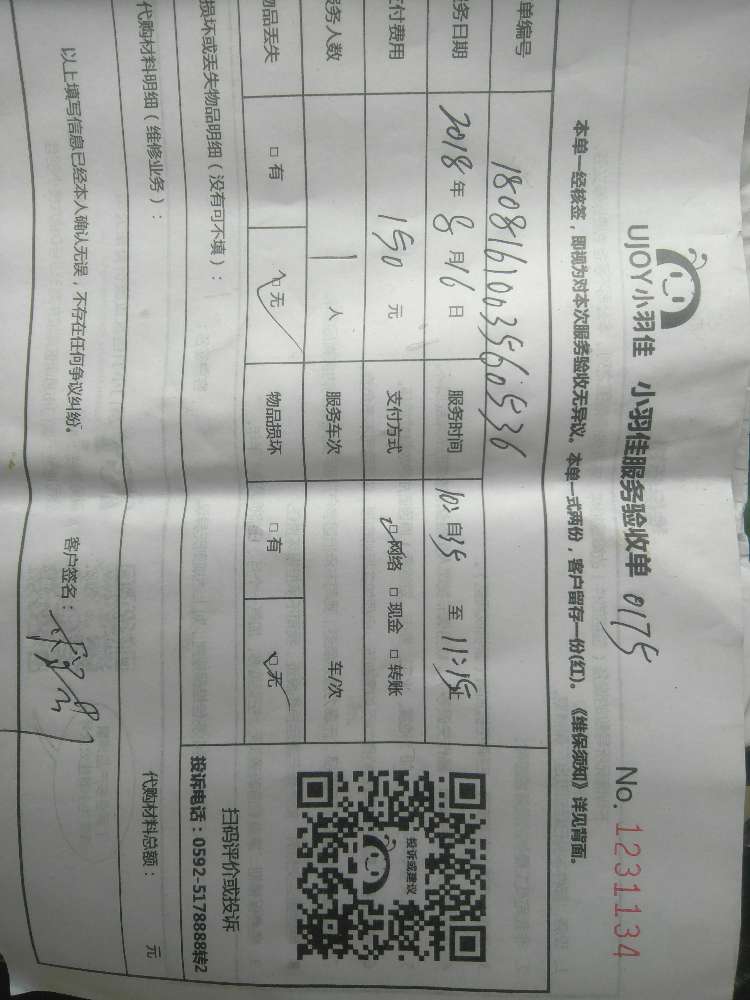 UJOY小羽佳 小羽佳服务验收单 0175 No. 1231134
本单一经核签，即视为对本次服务验收无异议。本单一式两份，客户留存一份(红)。《维保须知》详见背面。
单编号 1808161003560536
务日期 2018年8月16日 服务时间 自10:35 至11:15止
付费用 150元 支付方式 □网络 □现金 □转账
务人数 1人 服务车次 车/次
品丢失 □有 □无 物品损坏 □有 □无
投诉或建议
损坏或丢失物品明细（没有可不填）：
扫码评价或投诉
投诉电话：0592-5178888转2
代购材料明细（维修业务）： 代购材料总额： 元
以上填写信息已经本人确认无误，不存在任何争议纠纷。 客户签名：